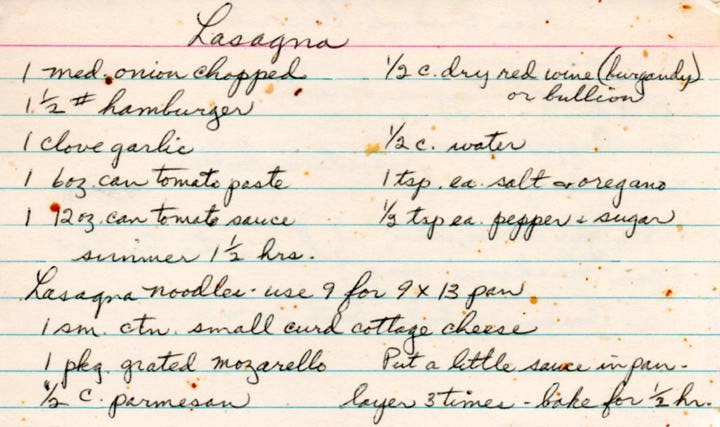 Lasagna
1 med. onion chopped 1/2 c. dry red wine (burgandy)
or bullion
1 1/2 # hamburger
1 clove garlic 1/2 c. water
1 6oz. can tomato paste 1 tsp. ea. salt & oregano
1 12oz. can tomato sauce 1/2 tsp ea. pepper & sugar
simmer 1 1/2 hrs.
Lasagna noodles - use 9 for 9 x 13 pan
1 sm. ctn. small curd cottage cheese
1 pkg. grated mozarello Put a little sauce in pan -
1/2 c. parmesan layer 3 times - bake for 1/2 hr.